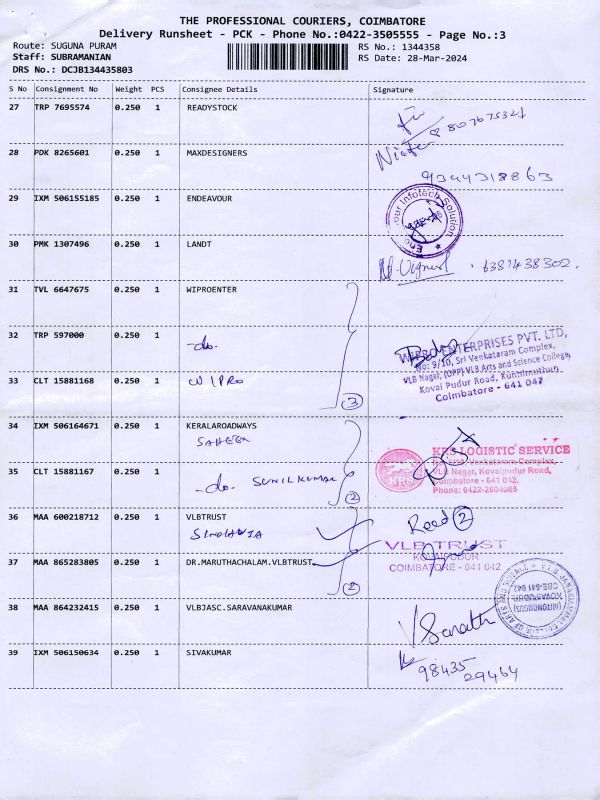 THE PROFESSIONAL COURIERS, COIMBATORE
Delivery Runsheet - PCK - Phone No.:0422-3505555 - Page No.:3
Route: SUGUNA PURAM
RS No.: 1344358
Staff: SUBRAMANIAN
RS Date: 28-Mar-2024
DRS No.: DCJB134435803
S No Consignment No Weight PCS Consignee Details Signature
27 TRP 7695574 0.250 1 READYSTOCK
807675321
28 PDK 8265601 0.250 1 MAXDESIGNERS
9344318863
29 IXM 506155185 0.250 1 ENDEAVOUR
Infotech Solution
30 PMK 1307496 0.250 1 LANDT
Vignesh 6381438302.
31 TVL 6647675 0.250 1 WIPROENTER
32 TRP 597000 0.250 1 -do-
WIPRO ENTERPRISES PVT. LTD,
No: 9/10, Sri Venkataram Complex,
VLB Nagar, (OPP) VLB Arts and Science College,
Kovai Pudur Road, Kuniamuthur,
Coimbatore - 641 042
33 CLT 15881168 0.250 1 WIPRO
3
34 IXM 506164671 0.250 1 KERALAROADWAYS
SAHEER
KRS LOGISTIC SERVICE
Venkataram Complex,
VLB Nagar, Kovaipudur Road,
Coimbatore - 641 042.
Phone: 0422-2604085
35 CLT 15881167 0.250 1 -do- SUNILKUMAR
2
36 MAA 600218712 0.250 1 VLBTRUST
Recd 2
VLB TRUST
KOVAIPUDUR
COIMBATORE - 641 042
37 MAA 865283805 0.250 1 DR.MARUTHACHALAM.VLBTRUST
2
(AUTONOMOUS)
KOVAIPUDUR
CBE-641 042
38 MAA 864232415 0.250 1 VLBJASC.SARAVANAKUMAR
39 IXM 506150634 0.250 1 SIVAKUMAR
98435
29464